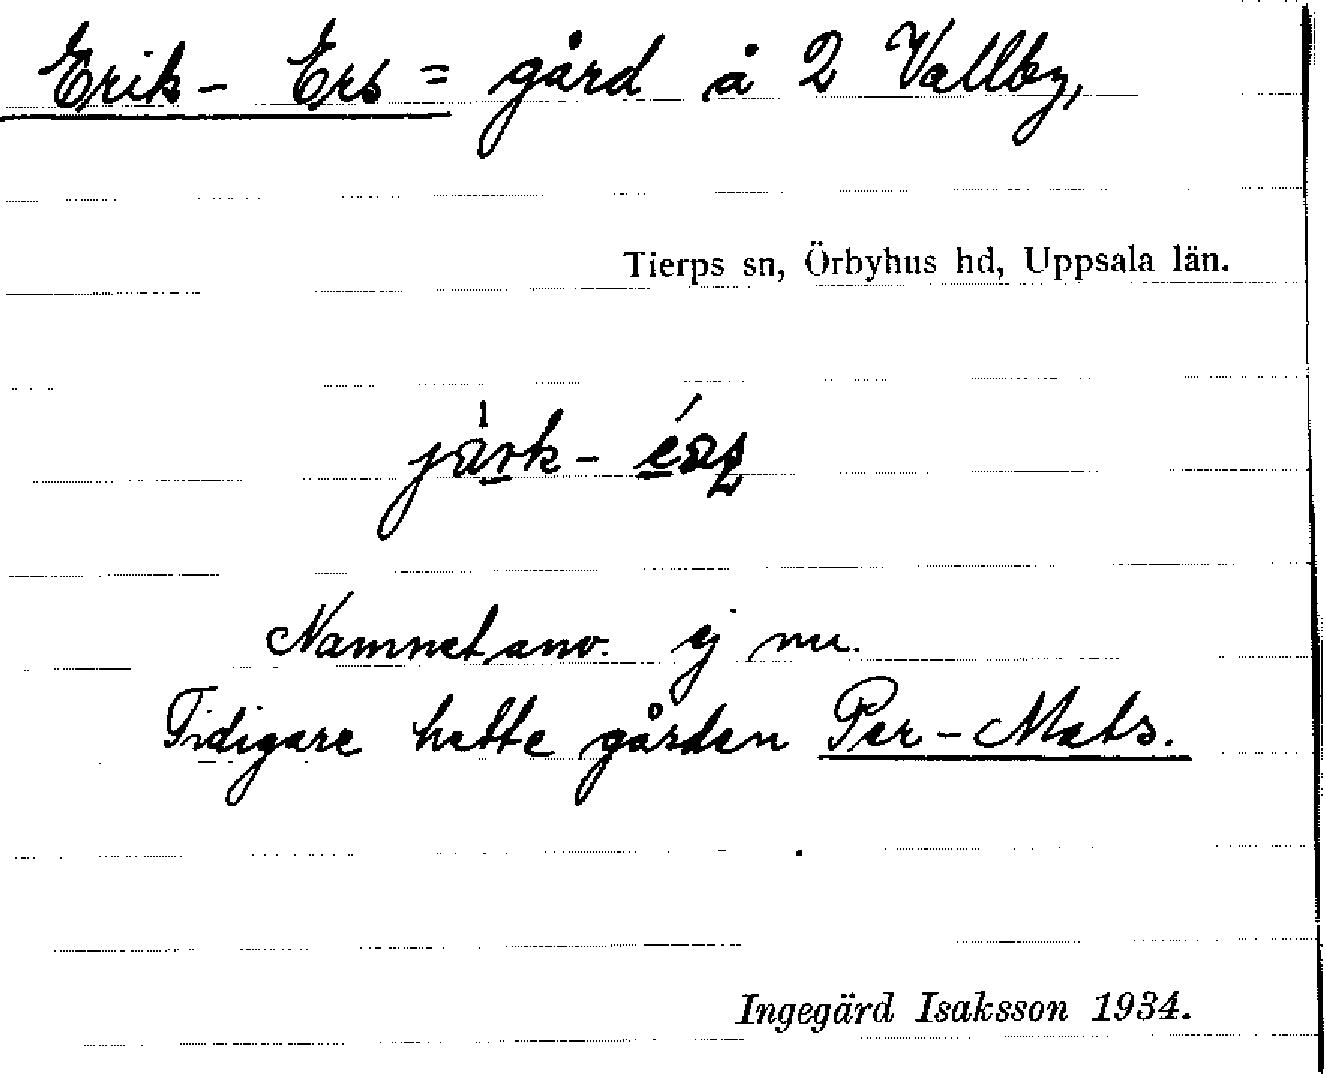 Erik-Ers = gård å 2 Vallby,
Tierps sn, Örbyhus hd, Uppsala län.
Namnet anv. ej nu.
Tidigare hette gården Per-Mats.
Ingegärd Isaksson 1934.